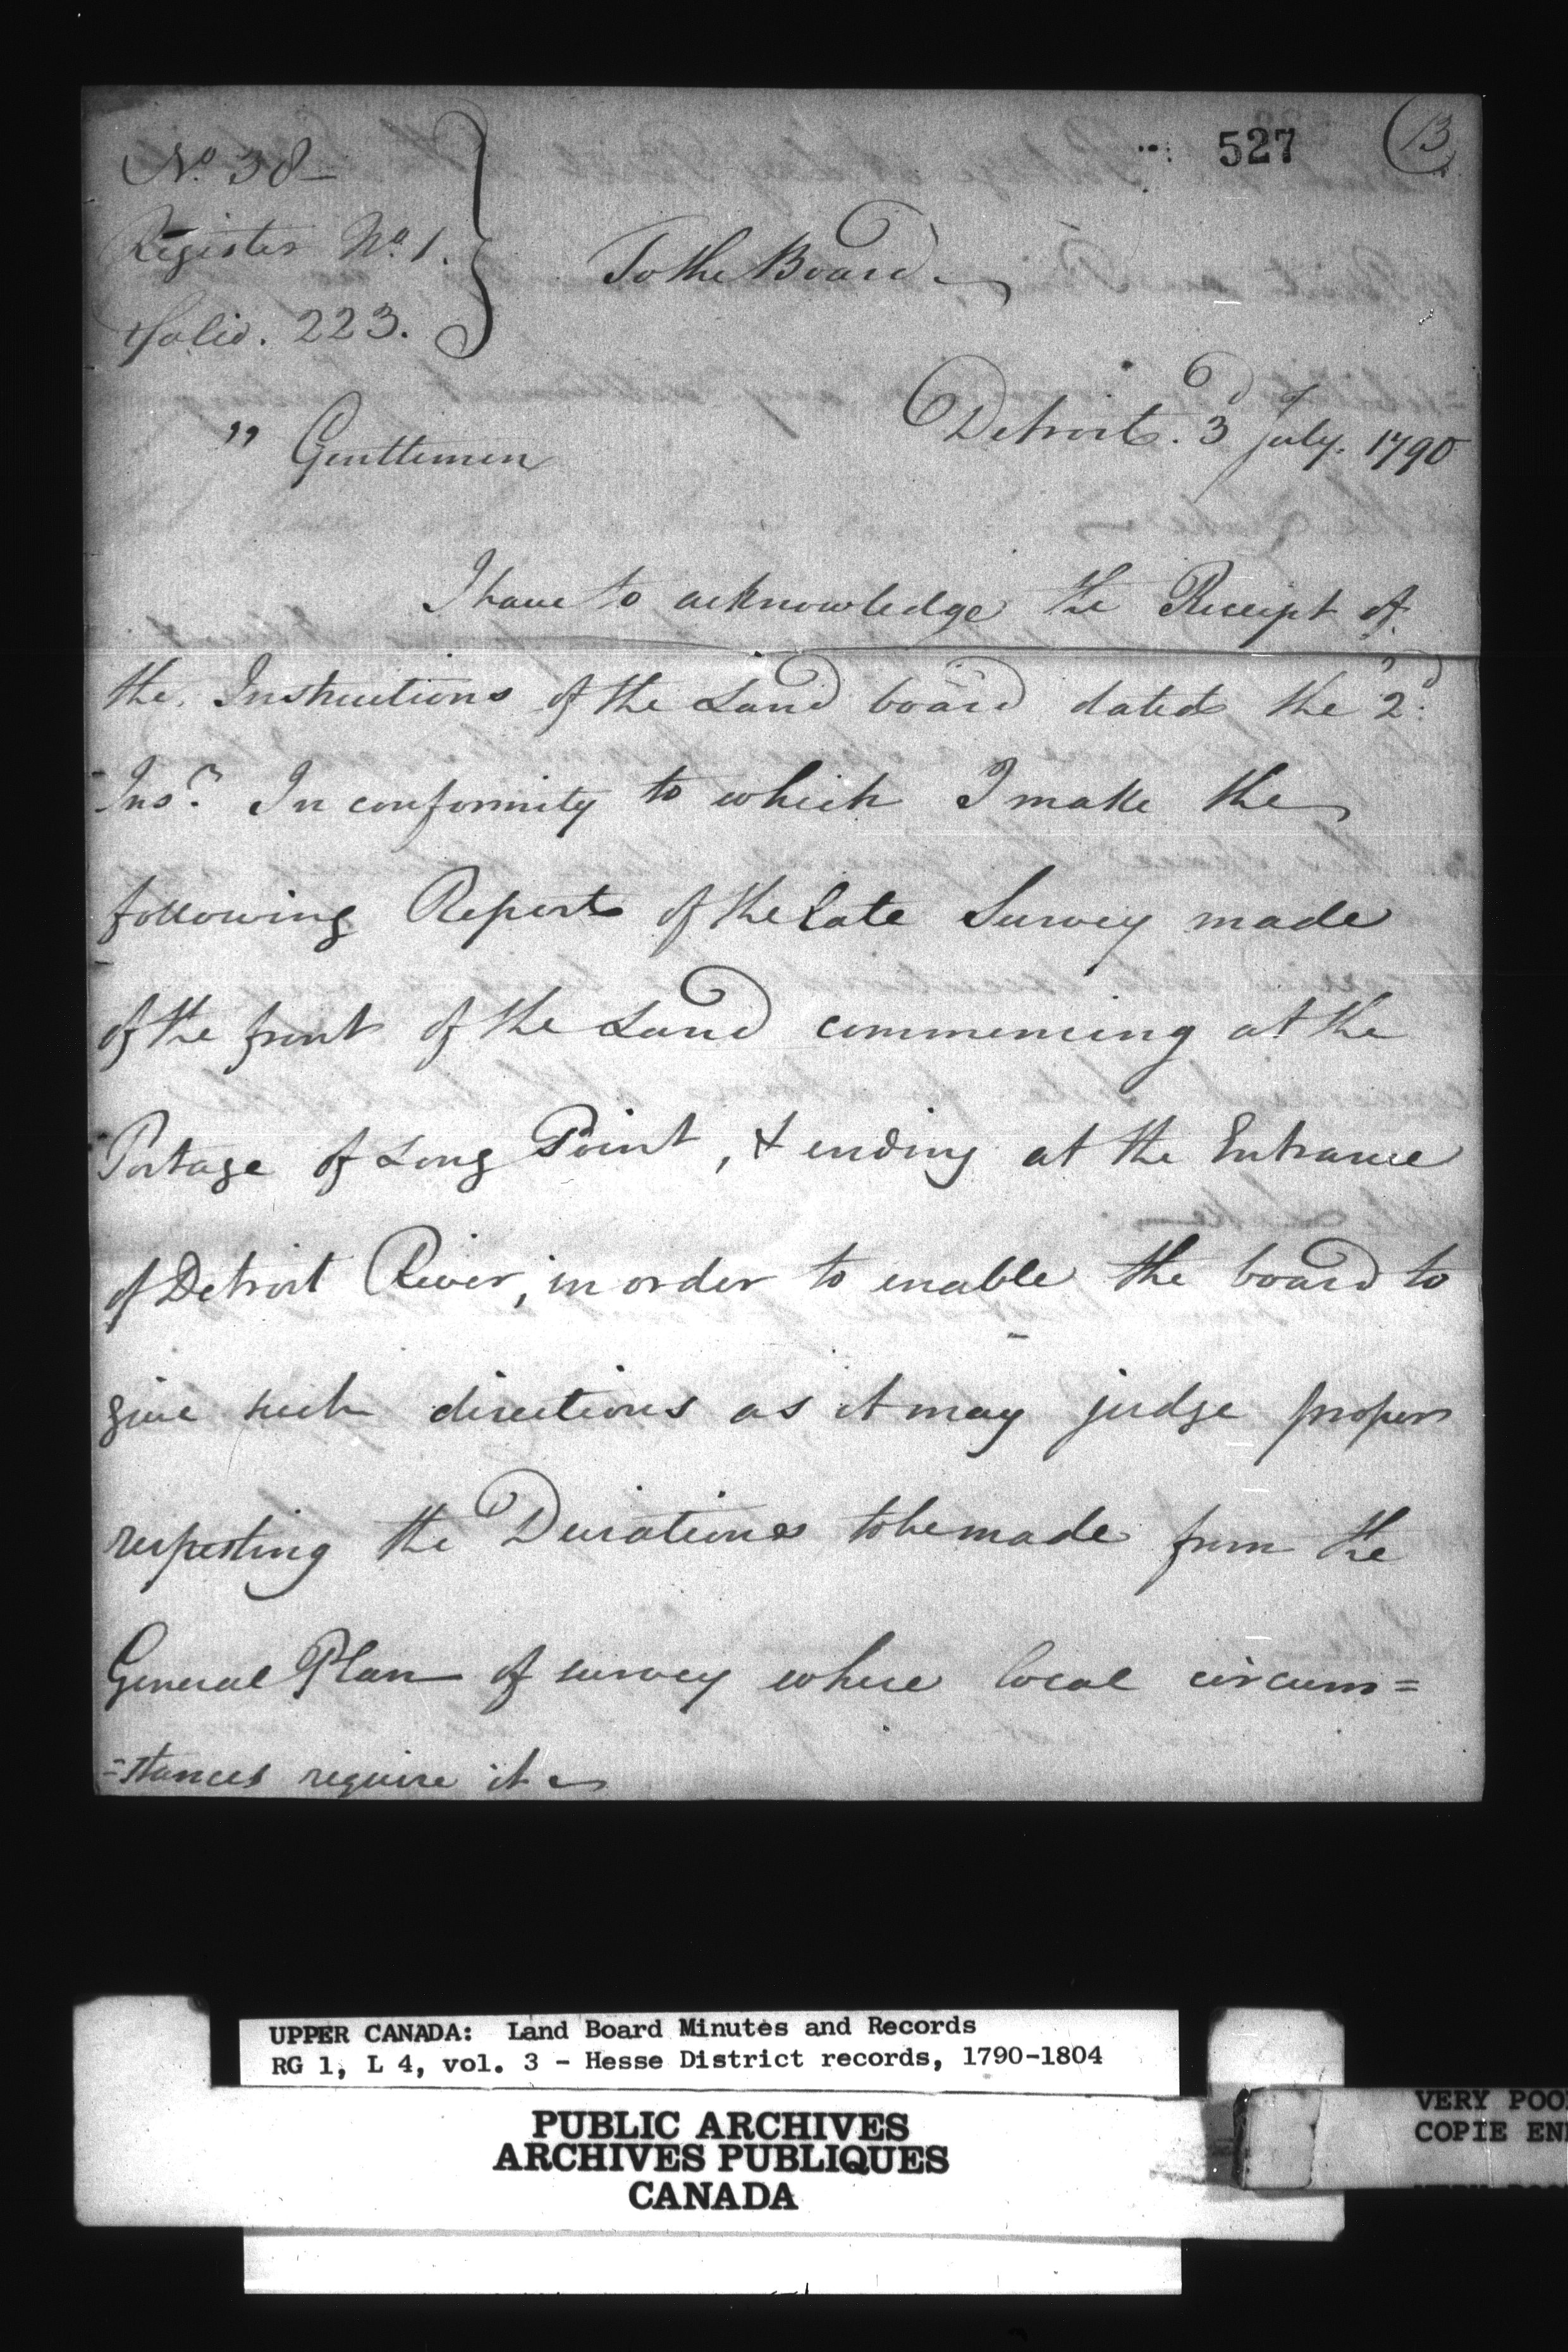 527
13
No. 38
Register No. 1.
folio. 223.
To the Board
Detroit. 3d July. 1790
" Gentlemen
I have to acknowledge the Receipt of
the Instructions of the Land board dated the 2d
Inst. In conformity to which I make the
following Report of the late Survey made
of the front of the Land commencing at the
Portage of Long Point, & ending at the Entrance
of Detroit River, in order to enable the board to
give such directions as it may judge proper
respecting the Deviations to be made from the
General Plan of survey where local circum=
=stances require it
UPPER CANADA: Land Board Minutes and Records
RG 1, L 4, vol. 3 - Hesse District records, 1790-1804
PUBLIC ARCHIVES
ARCHIVES PUBLIQUES
CANADA
VERY POO
COPIE EN